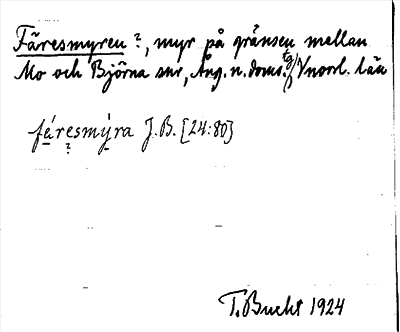 Färesmyren ?, myr på gränsen mellan
Mo och Björna snr, Ång. n. doms., Vnorrl. län
féresmýra J.B. [24:80]
T. Bucht 1924